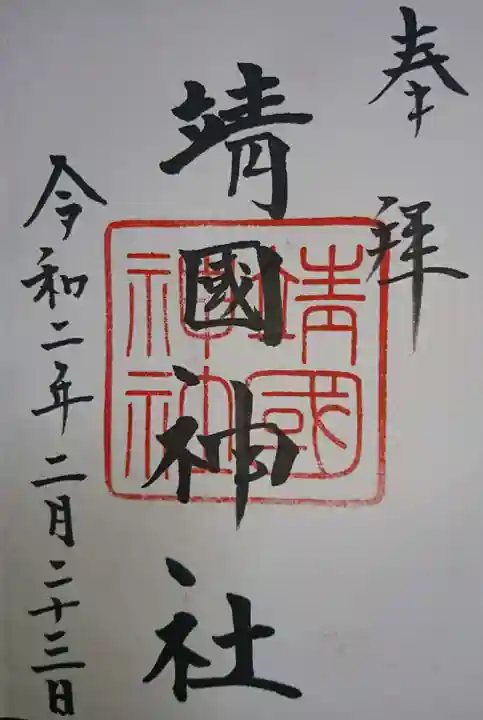 奉拜
靖國神社
靖國
神社
令和二年二月二十三日